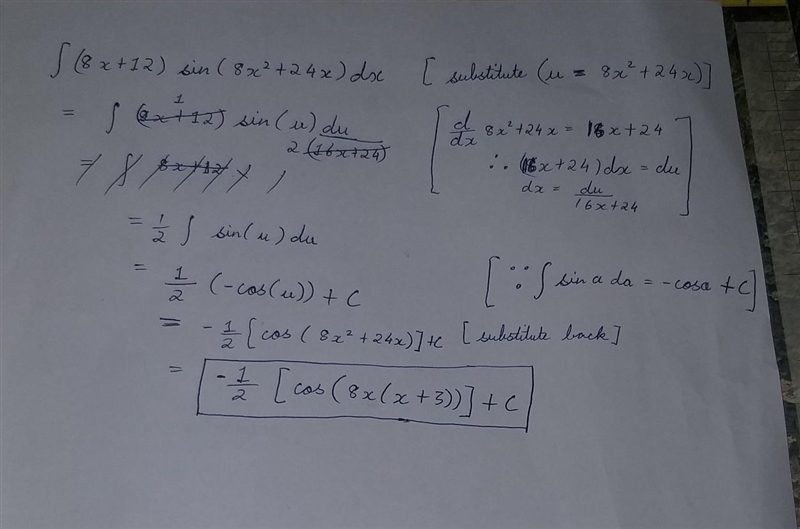 ∫ (8x+12) sin(8x²+24x) dx [substitute (u = 8x²+24x)]
= ∫ (8x+12) 1 sin(u) du / 2 (16x+24) [d/dx 8x²+24x = 16x+24
= ∫ 8x+12 ∴ (16x+24)dx = du
dx = du/16x+24]
= 1/2 ∫ sin(u) du
= 1/2 (-cos(u)) + C [∵ ∫ sin a da = -cosa + C]
= -1/2 [cos(8x²+24x)]+c [substitute back]
= -1/2 [cos(8x(x+3))] + C